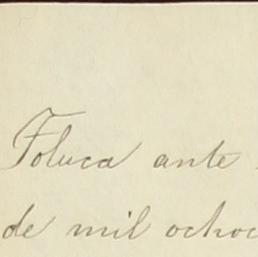 Toluca ante
de mil ochoc